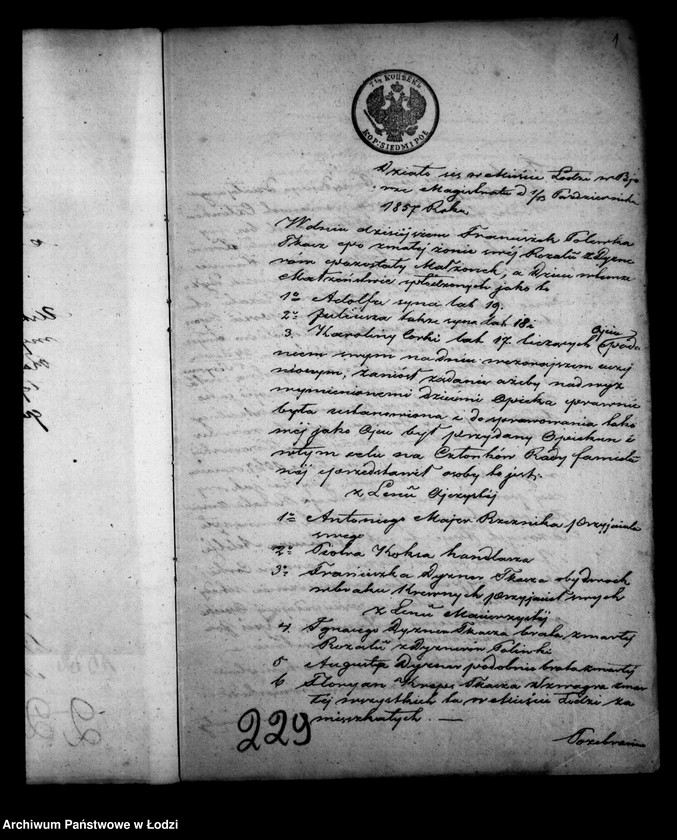 1
7½ КОПѢЕКЪ
KOP: SIEDM I PÓŁ
Działo się w Mieście Łodzi w Biu
rze Magistratu d 1/13 Października
1857 Roku
W dniu dzisiejszym Franciszek Polewka
Tkacz po zmarłej żonie swej Rozalii z Dyzne
rów pozostały Małżonek, a Dzieci w temże
Małżeństwie spłodzonych jako to
1º Adolfa syna lat 19.
2º Juliusza także syna lat 18 i
3. Karoliny Córki lat 17. liczących Ojciec
niem swym na dniu wczorajszem uczy
nionym, zaniósł żądanie ażeby nad wyż
wymienionemi dziećmi Opieka prawnie
była ustanowiona i do sprawowania tako
wéj jako Ojcu był przydany Opiekun i
w tym celu na Członków Rady familij
néj przedstawił osoby to jest:
z Linii Ojczystéj
1º Antoniego Majer Rzeźnika przyjaciela
swego
2º Piotra Koksa handlarza
3º Franciszka Dyzner Tkacza obydwoch
w braku Krewnych przyjaciół swych
z Linii Macierzystéj
4. Ignacego Dyzner Tkacza brata zmarłéj
Rozalii z Dyznerów Polewki
5 Augusta Dyzner podobnie brata zmarłéj
6 Floryan Tkacza Szwagra zmar
łéj wszystkich tu w Mieście Łodzi za
mieszkałych. —
229
Archiwum Państwowe w Łodzi